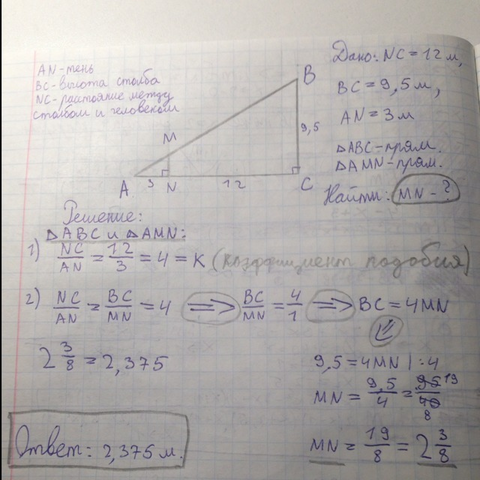 AN-тень
BC-высота столба
NC-расстояние между
столбом и человеком
Дано: NC = 12 м,
BC = 9,5 м,
AN = 3 м
△ABC-прям.
△AMN-прям.
Найти: MN - ?
B
M
9,5
A
3
N
12
C
Решение:
△ABC и △AMN:
1) NC/AN = 12/3 = 4 = K (коэффициент подобия)
2) NC/AN = BC/MN = 4 ⇒ BC/MN = 4/1 ⇒ BC = 4MN
⇙
2 3/8 = 2,375
9,5 = 4MN | : 4
MN = 9,5/4 = 95 19/40 8
MN = 19/8 = 2 3/8
Ответ: 2,375 м.